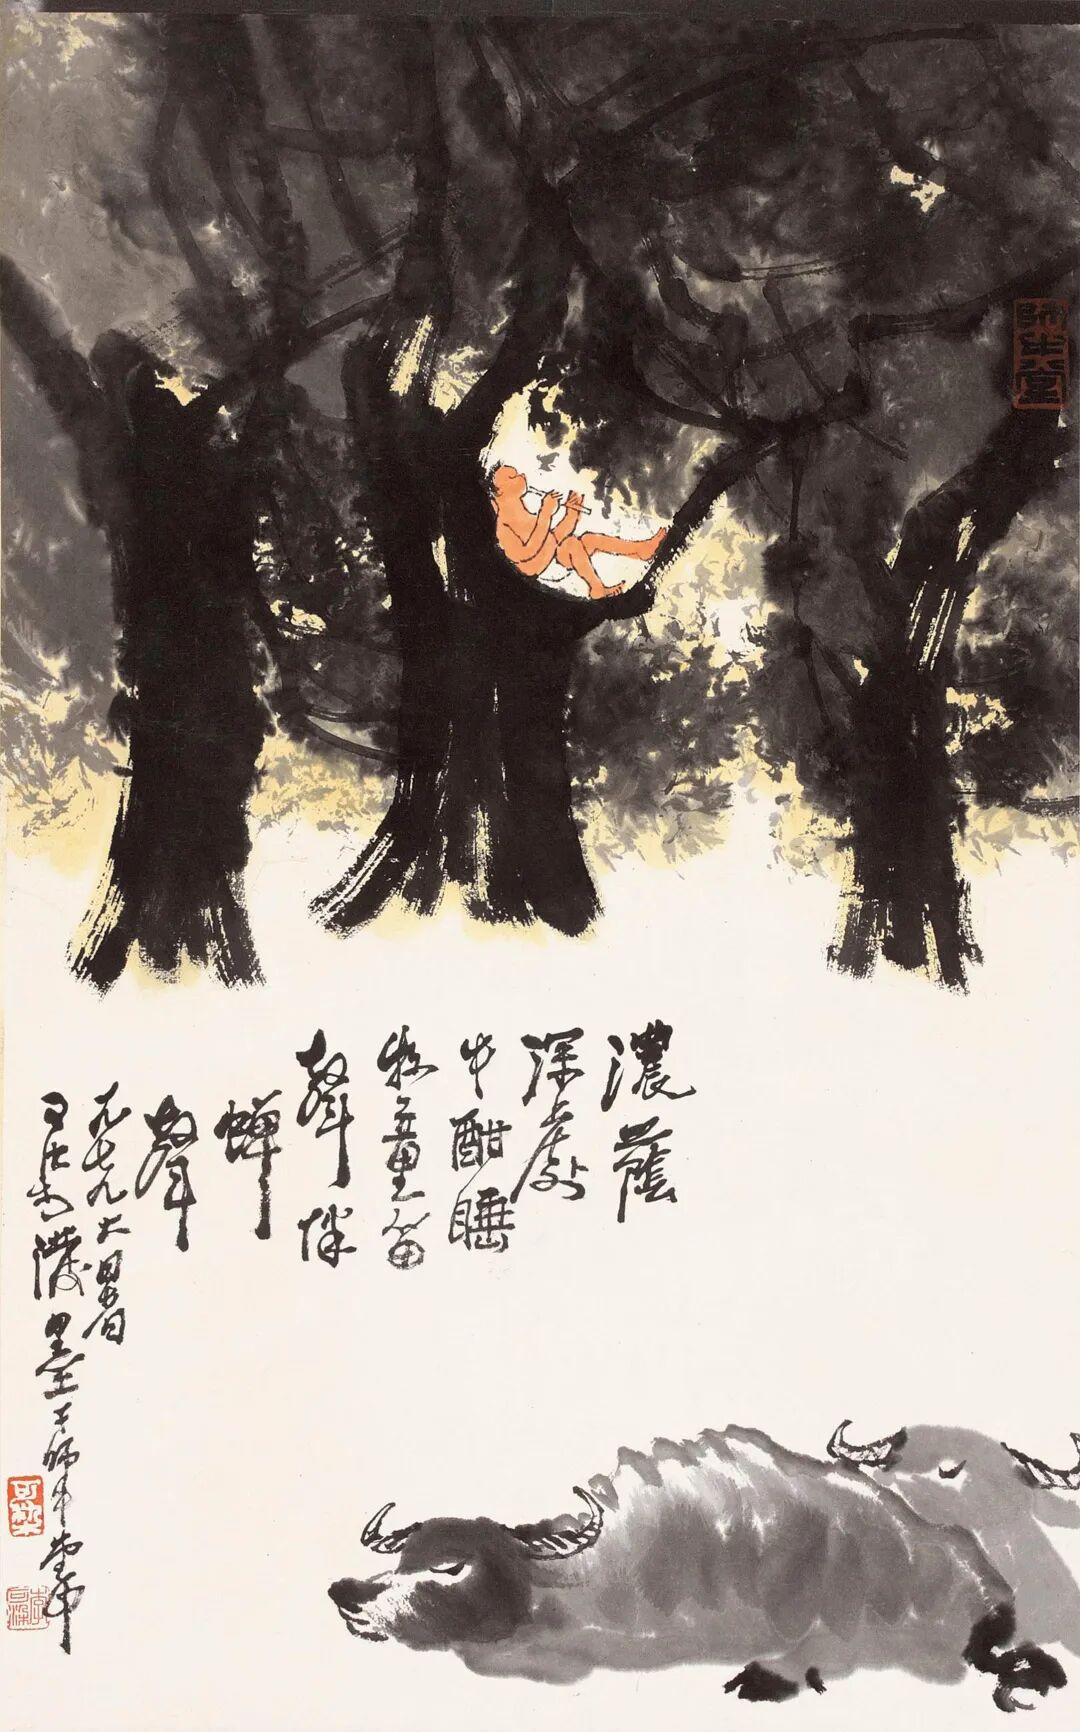 濃蔭
深處
牛酣睡
牧童笛
聲伴
蟬
聲
一九七九大暑日
可染墨于師牛堂中
師牛堂
可染
李可染